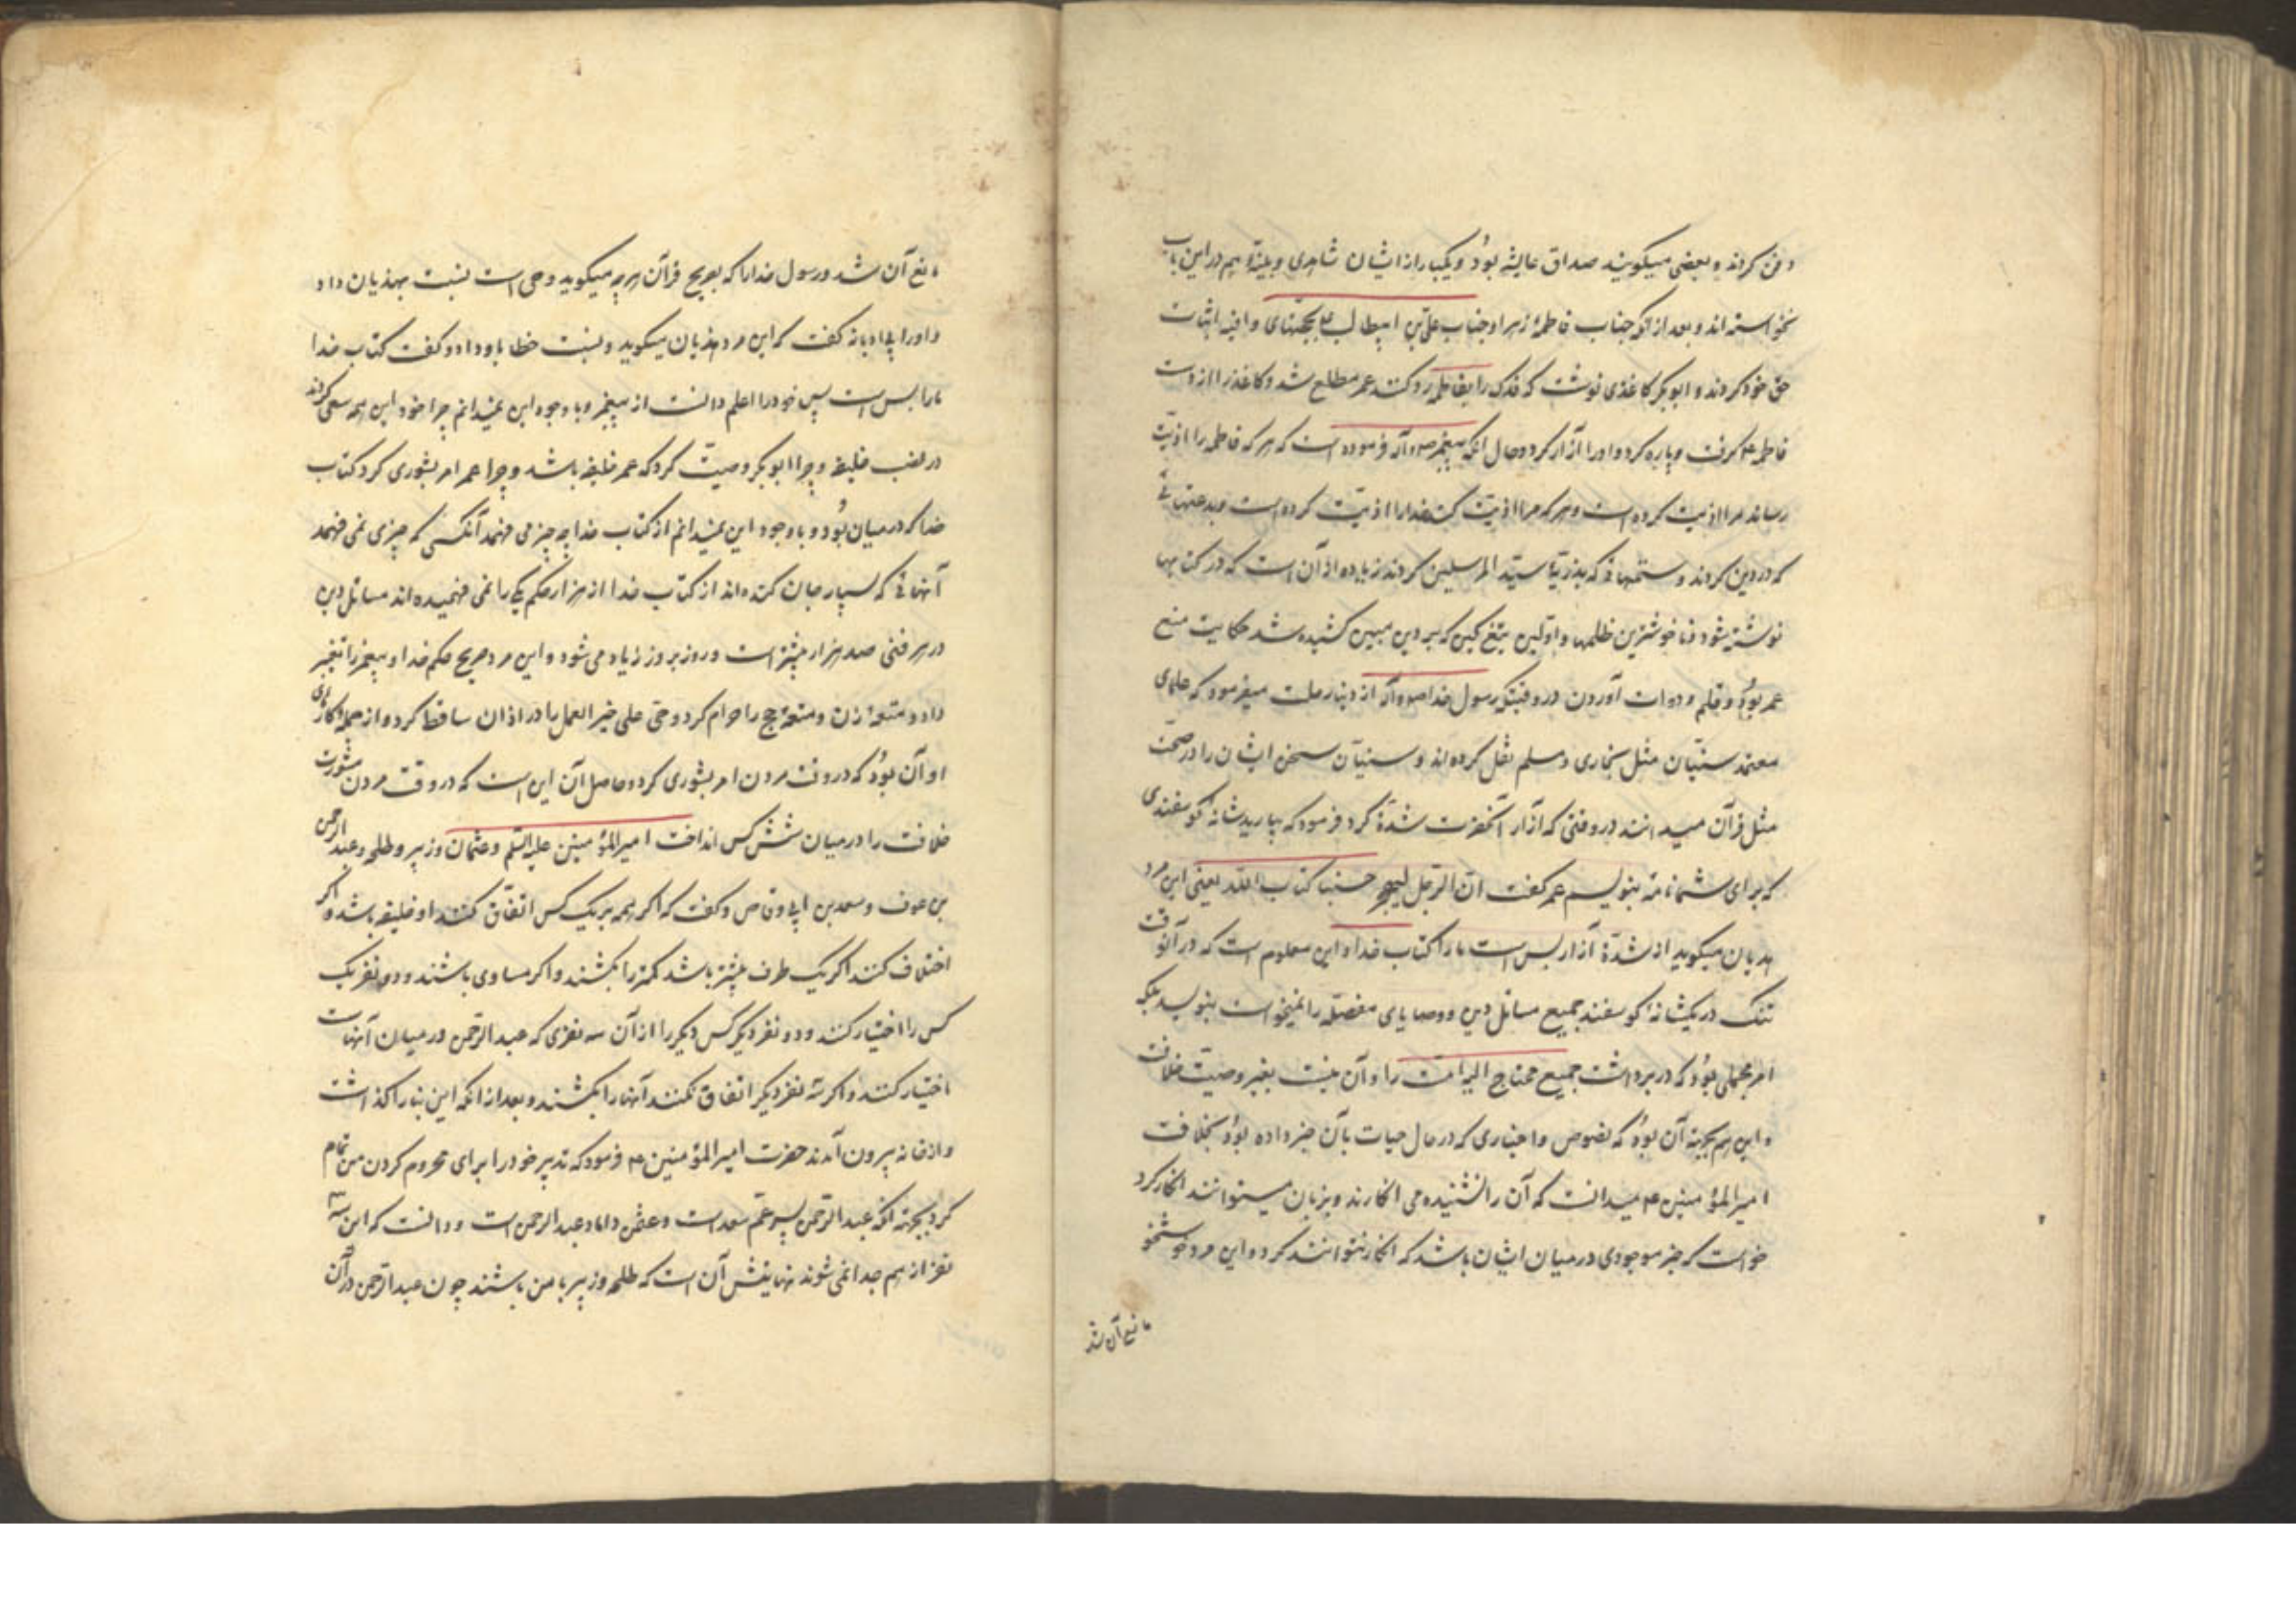 دفن کردند و بعضی میگویند صداق عایشه بود و یکبار از ایشان شاهدی و بینهٔ هم در این باب
نخواسته اند و بعد از آنکه جناب فاطمهٔ زهرا و جناب علی بن ابیطالب ع بحجتهای وافیه اثبات
حق خود کردند و ابوبکر کاغذی نوشت که فدک را بفاطمه رد کنند عمر مطلع شد و کاغذ را از دست
فاطمه ع گرفت و پاره کرد و او را آزار کرد و حال آنکه پیغمبر ص و آله فرموده است که هر که فاطمه را اذیت
رساند مرا اذیت کرده است و هر که مرا اذیت کند خدا را اذیت کرده است و بدعتهائی
که در دین کردند و ستمهائی که بذریهٔ سید المرسلین کردند زیاده از آن است که در کتابها
نوشته شود و ناخوشترین ظلمها و اولین تیغ کین که بر دین مبین کشیده شد حکایت منع
عمر بود و قلم و دوات آوردن در وقتیکه رسول خدا ص و آله از دنیا رحلت میفرمود که علمای
معتمد سنیان مثل بخاری و مسلم نقل کرده اند و سنیان سخن ایشان را در صحت
مثل قرآن میدانند در وقتی که آزار آنحضرت شدة کرد فرمود که بیارید شانهٔ گوسفندی
که برای شما نامه بنویسم عمر گفت ان الرجل لیهجر حسبنا کتاب الله یعنی این مرد
هذیان میگوید از شدة آزار بس است ما را کتاب خدا و این معلوم است که در آنوقت
تنگ در یکشانهٔ گوسفند جمیع مسائل دین و وصایای مفصله را نمیخواست بنویسد بلکه
امر مجملی بود که در برداشت جمیع محتاج الیه امت را و آن نیست بغیر وصیت خلافت
و این هم بجهته آن بود که نصوص و اخباری که در حال حیات بآن خبر داده بود بخلافت
امیر المؤمنین ع میدانست که آن را نشنیده می انگارند و بزبان میتوانند انکار کرد
خواست که خبر موجودی در میان ایشان باشد که انکار نتوانند کرد و این مرد خوشخو
مانع آن شد
مانع آن شد و رسول خدا را که بصریح قرآن هر چه میگوید وحی است نسبت بهذیان داد
و او را بی ادبانه گفت که این مرد هذیان میگوید و نسبت خطا باو داد و گفت کتاب خدا
ما را بس است پس خود را اعلم دانست از پیغمبر و با وجود این نمیدانم چرا خود این همه سعی کردند
در نصب خلیفه و چرا ابوبکر وصیت کرد که عمر خلیفه باشد و چرا عمر امر بشوری کرد کتاب
خدا که در میان بود و با وجود این نمیدانم از کتاب خدا چه چیز می فهمد آنکسی که چیزی نمی فهمد
آنهائی که بسیار جان کنده اند از کتاب خدا از هزار حکم یکی را نمی فهمیده اند مسائل دین
در هر فنی صد هزار بیشتر است و روز بروز زیاد می شود و این مرد صریح حکم خدا و پیغمبر را تغییر
داد و متعهٔ زن و متعهٔ حج را حرام کرد و حی علی خیر العمل را در اذان ساقط کرد و از جمله کارهای
او آن بود که در وقت مردن امر بشوری کرد و حاصل آن این است که در وقت مردن مشورت
خلافت را در میان شش کس انداخت امیر المؤمنین علیه السلم و عثمان و زبیر و طلحه و عبد الرحمن
بن عوف و سعد بن ابی وقاص و گفت که اگر همه بر یک کس اتفاق کنند او خلیفه باشد و اگر
اختلاف کنند اگر یک طرف بیشتر باشد کمتر را بکشند و اگر مساوی باشند و دو نفر یک
کس را اختیار کنند و دو نفر دیگر کس دیگر را از آن سه نفری که عبد الرحمن در میان آنهاست
اختیار کنند و اگر سه نفر دیگر اتفاق نکنند آنها را بکشند و بعد از آنکه این بنا را گذاشت
و از خانه بیرون آمدند حضرت امیر المؤمنین ع فرمود که تدبیر خود را برای محروم کردن من تمام
کرد بجهته آنکه عبد الرحمن پسر عم سعد است و عثمن داماد عبد الرحمن است و دانست که این سه
نفر از هم جدا نمی شوند نهایتش آن است که طلحه و زبیر با من باشند چون عبد الرحمن در آن